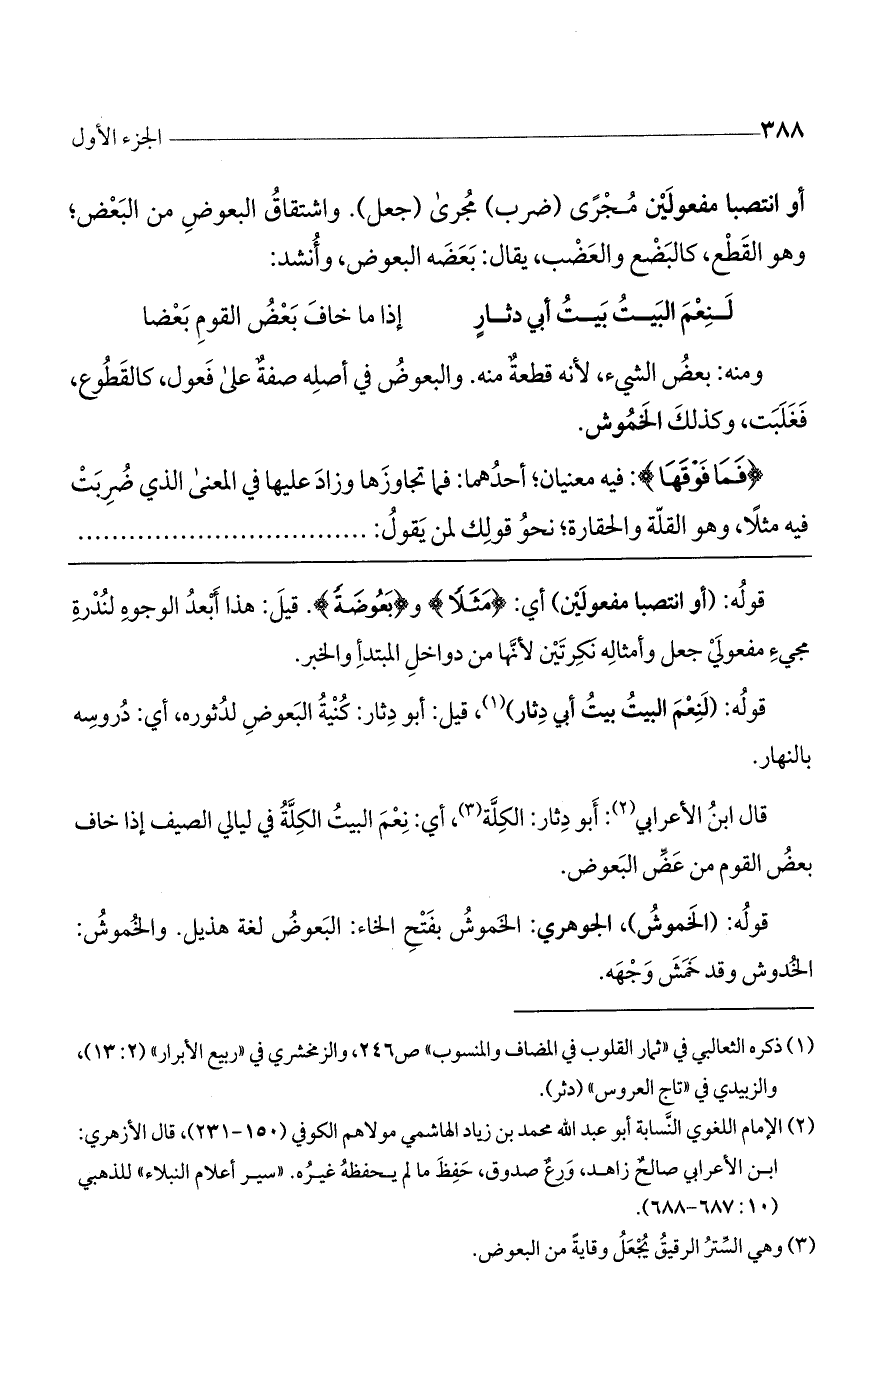 ٣٨٨ الجزء الأول
أو انتصبا مفعولَيْن مُجْرًى (ضرب) مُجرىٰ (جعل). واشتقاقُ البعوضِ من البَعْض؛
وهو القَطْع، كالبَضْع والعَضْب، يقال: بَعَضَه البعوض، وأُنشد:
لَنِعْمَ البَيتُ بَيتُ أبي دثارٍ إذا ما خافَ بَعْضُ القومِ بَعْضا
ومنه: بعضُ الشيء، لأنه قطعةٌ منه. والبعوضُ في أصلِه صفةٌ علىٰ فَعول، كالقَطُوع،
فَغَلَبَت، وكذلكَ الخَمُوش.
﴿فَمَا فَوْقَهَا﴾: فيه معنيان؛ أحدُهما: فما تجاوزَها وزادَ عليها في المعنىٰ الذي ضُرِبَتْ
فيه مثلًا، وهو القلّة والحقارة؛ نحوُ قولِك لمن يَقولُ: ..................................
قولُه: (أو انتصبا مفعولَيْن) أي: ﴿مَثَلًا﴾ و﴿بَعُوضَةً﴾. قيلَ: هذا أَبْعدُ الوجوهِ لنُدْرةِ
مجيءِ مفعوليْ جعل وأمثالِه نَكِرتَيْن لأنَّها من دواخلِ المبتدأِ والخبر.
قولُه: (لَنِعْمَ البيتُ بيتُ أبي دِثار)(١)، قيل: أبو دِثار: كُنْيةُ البَعوضِ لدُثوره، أي: دُروسِه
بالنهار.
قال ابنُ الأعرابي(٢): أَبو دِثار: الكِلَّة(٣)، أي: نِعْمَ البيتُ الكِلَّةُ في ليالي الصيف إذا خاف
بعضُ القوم من عَضِّ البَعوض.
قولُه: (الخَموشُ)، الجوهري: الخَموشُ بفَتْحِ الخاء: البَعوضُ لغة هذيل. والخُموشُ:
الخُدوش وقد خَمَشَ وَجْهَه.
(١) ذكره الثعالبي في «ثمار القلوب في المضاف والمنسوب» ص٢٤٦، والزمخشري في «ربيع الأبرار» (٢: ١٣)،
والزبيدي في «تاج العروس» (دثر).
(٢) الإمام اللغوي النَّسابة أبو عبد الله محمد بن زياد الهاشمي مولاهم الكوفي (١٥٠-٢٣١)، قال الأزهري:
ابن الأعرابي صالحٌ زاهد، وَرِعٌ صدوق، حَفِظَ ما لم يحفظهُ غيرُه. «سير أعلام النبلاء» للذهبي
(١٠: ٦٨٧-٦٨٨).
(٣) وهي السِّترُ الرقيقُ يُجْعَلُ وقايةً من البعوض.